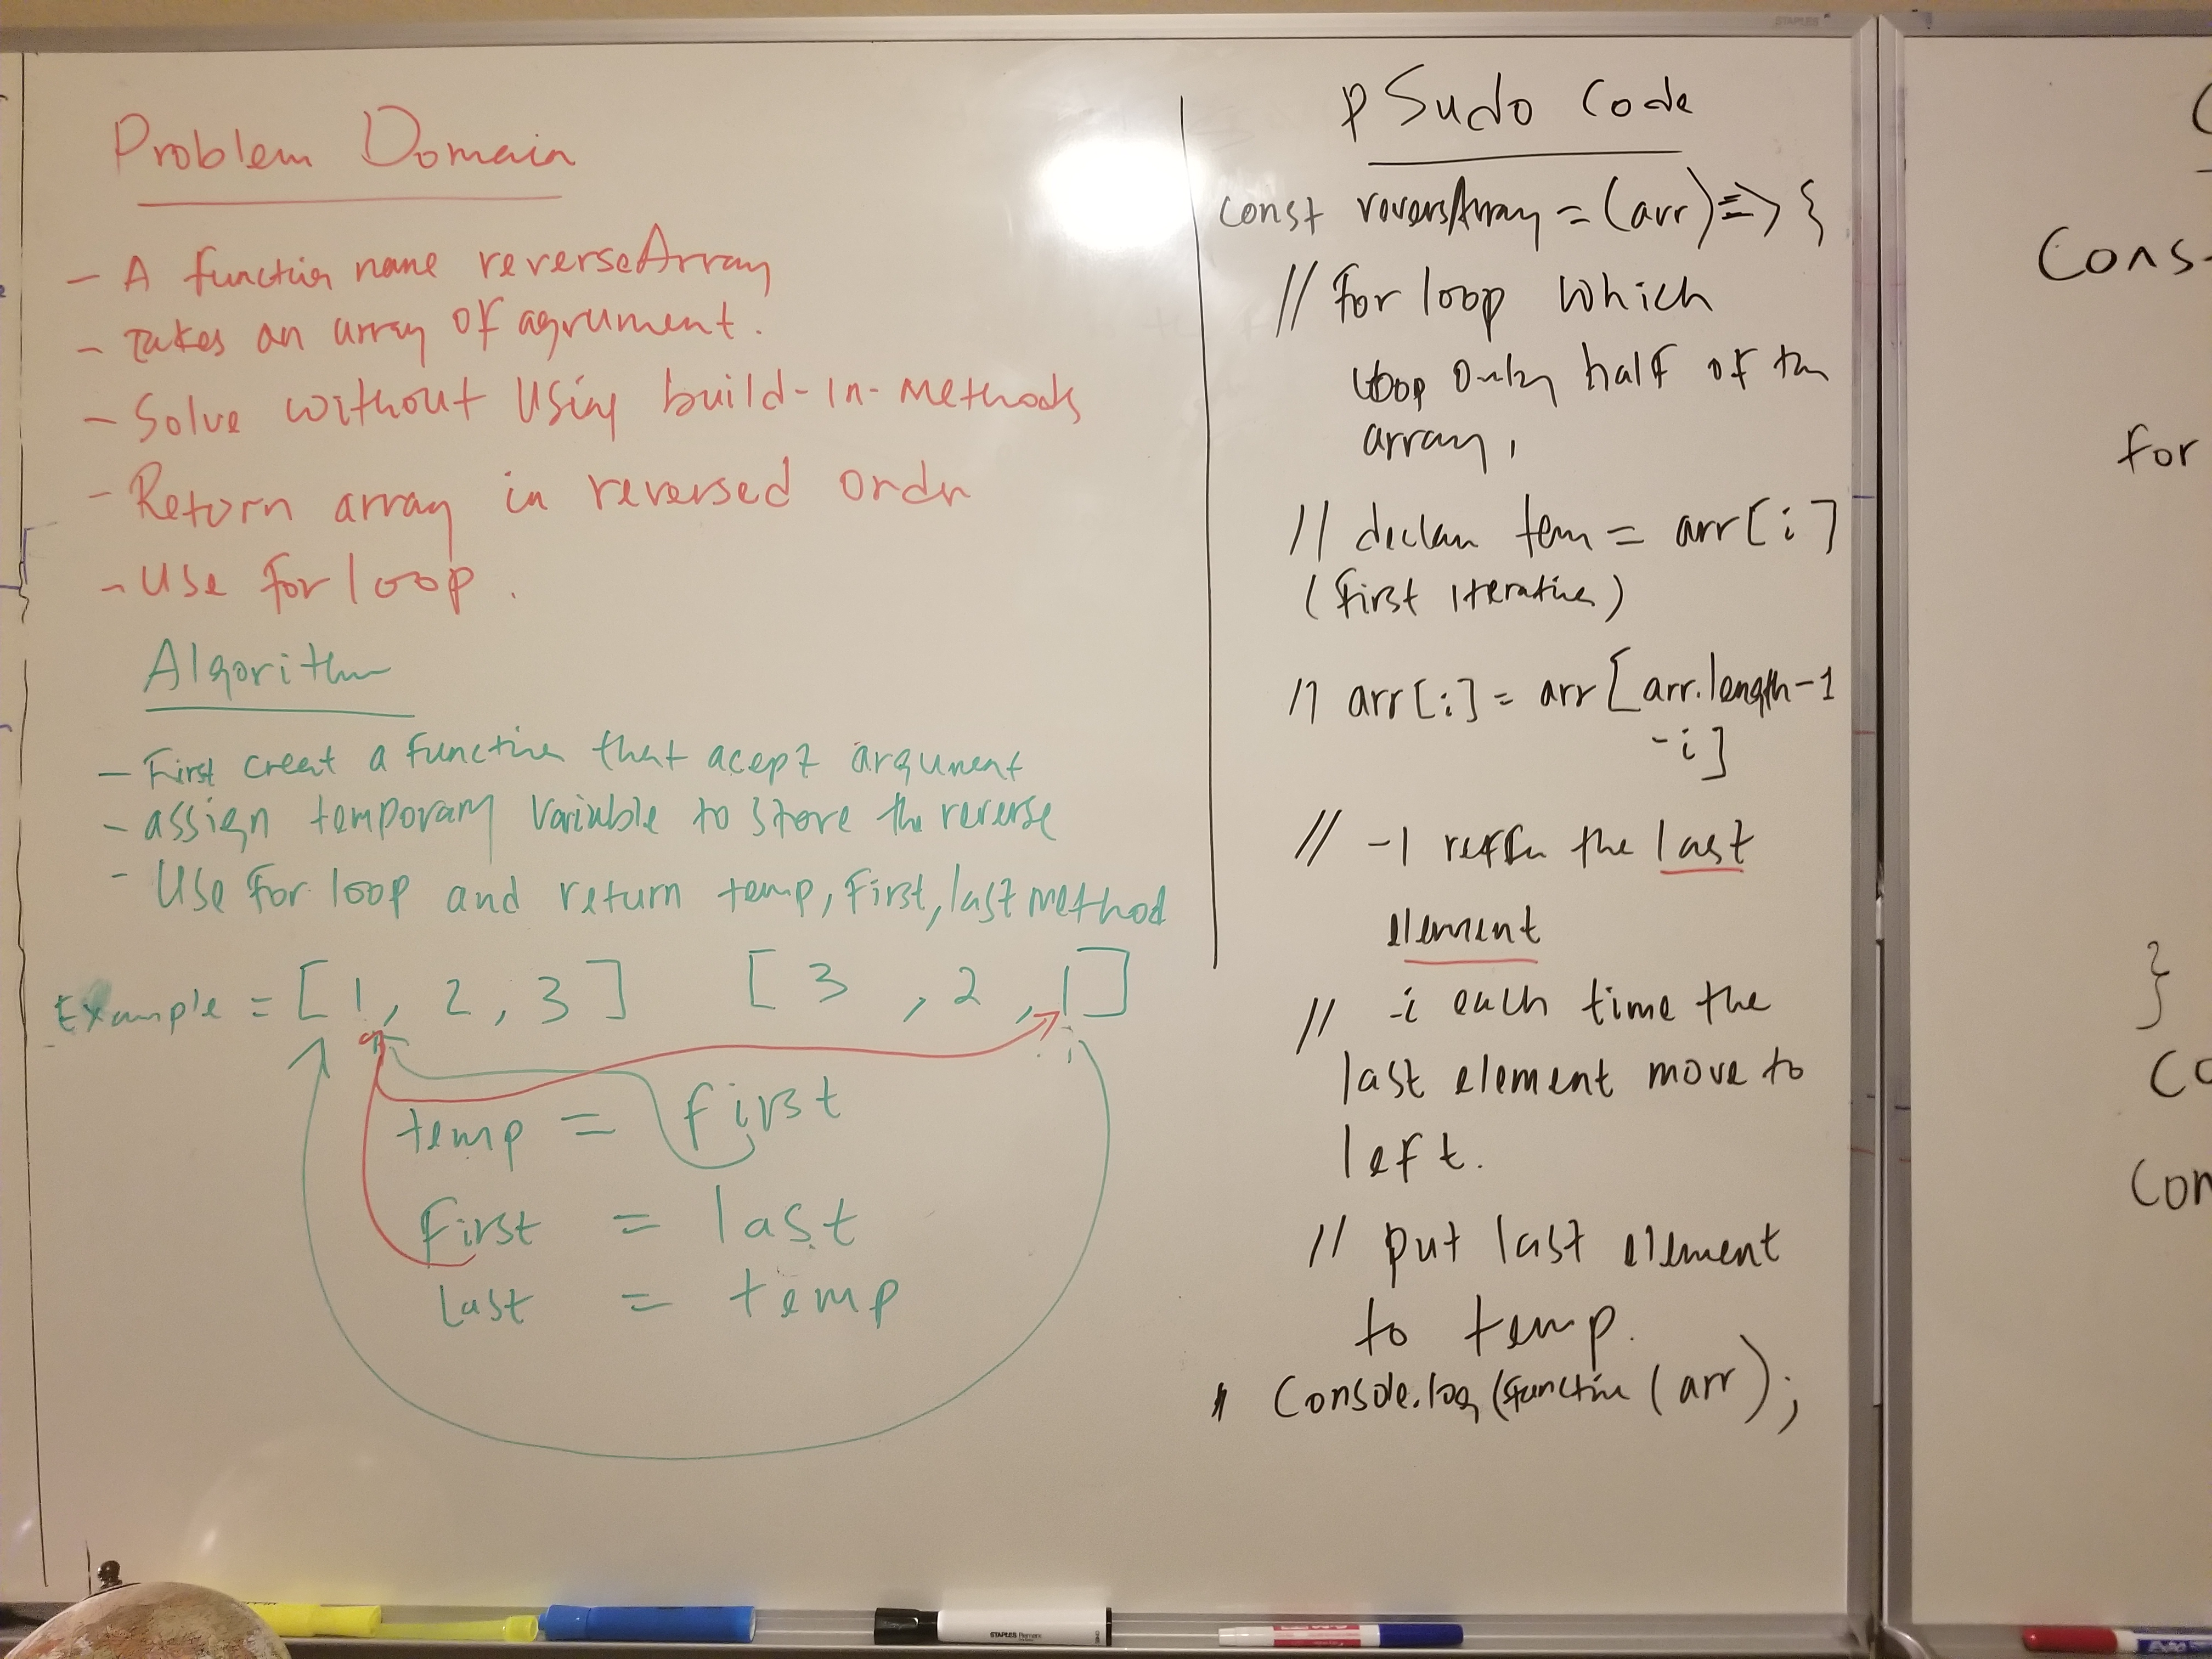 Problem Domain
- A function name reverseArray
- Takes an array of agrument.
- Solve without Using build-In-Methods
- Return array in reversed order
- Use for loop.
Algorithm
- First creat a function that acept argument
- assign temporary Variable to store the reverse
- Use for loop and return temp, First, last method
Example = [ 1, 2, 3 ] [ 3 , 2 , 1 ]
temp = first
First = last
last = temp
pSudo Code
const reversArray = (arr) => {
// For loop which
loop only half of the
array,
// declare tem = arr[i]
(first iteration)
// arr[i] = arr[arr.length-1
-i]
// -1 the last
element
// -i each time the
last element move to
left.
// put last element
to temp.
Console.log(function(arr);
Cons
for
}
Co
Con
STAPLES
STAPLES Remarx